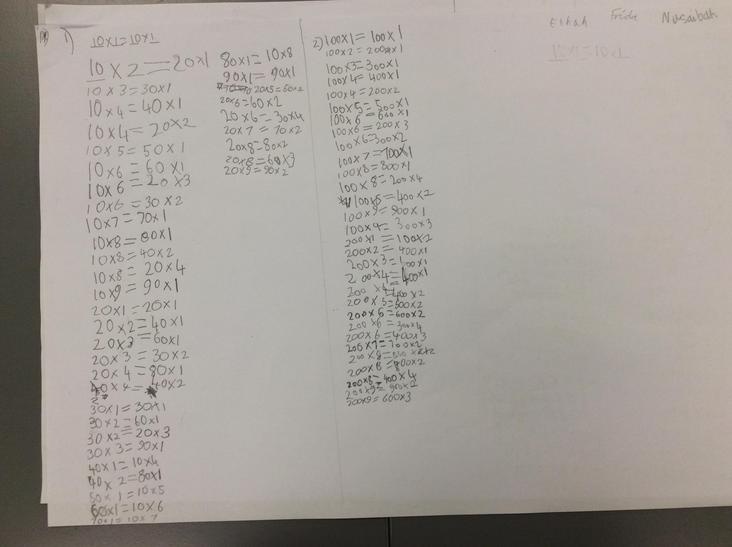 Elhah Frida Nusaibah
1)
10×1=10×1
10×2=20×1
10×3=30×1
10×4=40×1
10×4=20×2
10×5=50×1
10×6=60×1
10×6=20×3
10×6=30×2
10×7=70×1
10×8=80×1
10×8=40×2
10×8=20×4
10×9=90×1
20×1=20×1
20×2=40×1
20×3=60×1
20×3=30×2
20×4=80×1
=40×2
30×1=30×1
30×2=60×1
30×2=20×3
30×3=90×1
40×1=10×4
40×2=80×1
50×1=10×5
60×1=10×6
70×1=10×7
80×1=10×8
90×1=90×1
20×5=50×2
20×6=60×2
20×6=30×4
20×7=70×2
20×8=80×2
20×8=60×3
20×9=90×2
2)
100×1=100×1
100×2=200×1
100×3=300×1
100×4=400×1
100×4=200×2
100×5=500×1
100×6=600×1
100×6=200×3
100×6=300×2
100×7=700×1
100×8=800×1
100×8=200×4
100×8=400×2
100×9=900×1
100×9=300×3
200×1=100×2
200×2=400×1
200×3=
200×4=400×1
200×4=400×2
200×5=500×2
200×6=600×2
200×6=300×4
200×6=400×3
200×7=700×2
200×8=
200×8=800×2
200×8=400×4
200×9=900×2
200×9=600×3